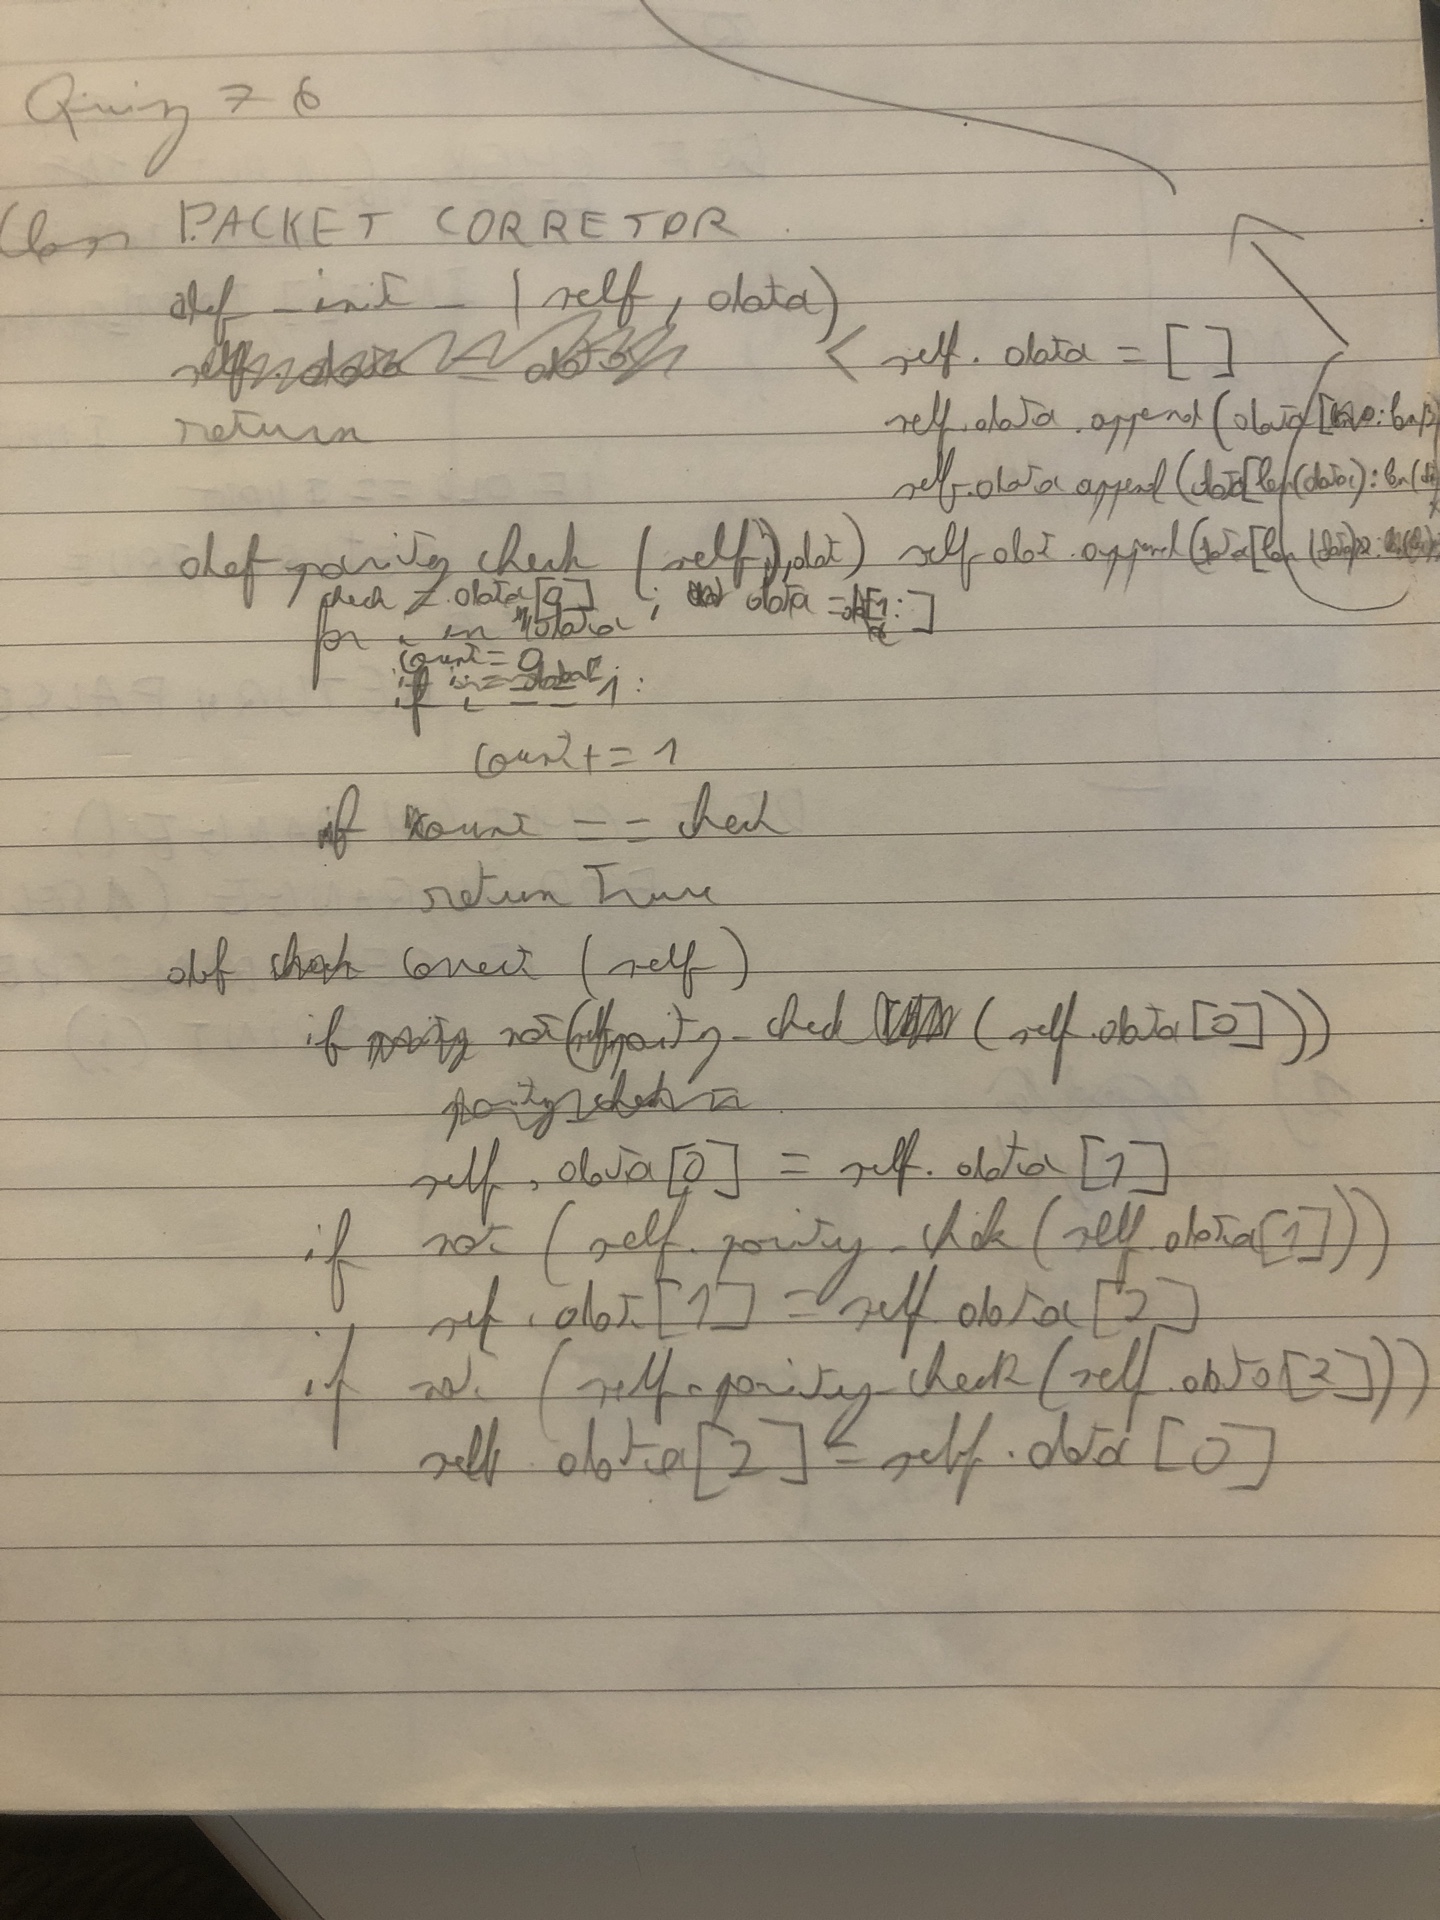 Quiz 7 6
Class PACKET CORRETOR
def _init_ (self, data)
self.data = []
return
self.data.append(data[
self.data append(data[len(data):len(
def parity check (self, dat)
self dat.append(data[len
check = data[0] ; data =
for i in data
count = 0
if i == 1:
count += 1
if count == check
return True
def correct (self)
if not(self parity_check (self.data[0]))
self.data[0] = self.data[1]
if not (self.parity_chek (self.data[1]))
self.dat[1] = self data[2]
if not (self.parity_check (self.data[2]))
self data[2] = self.data[0]